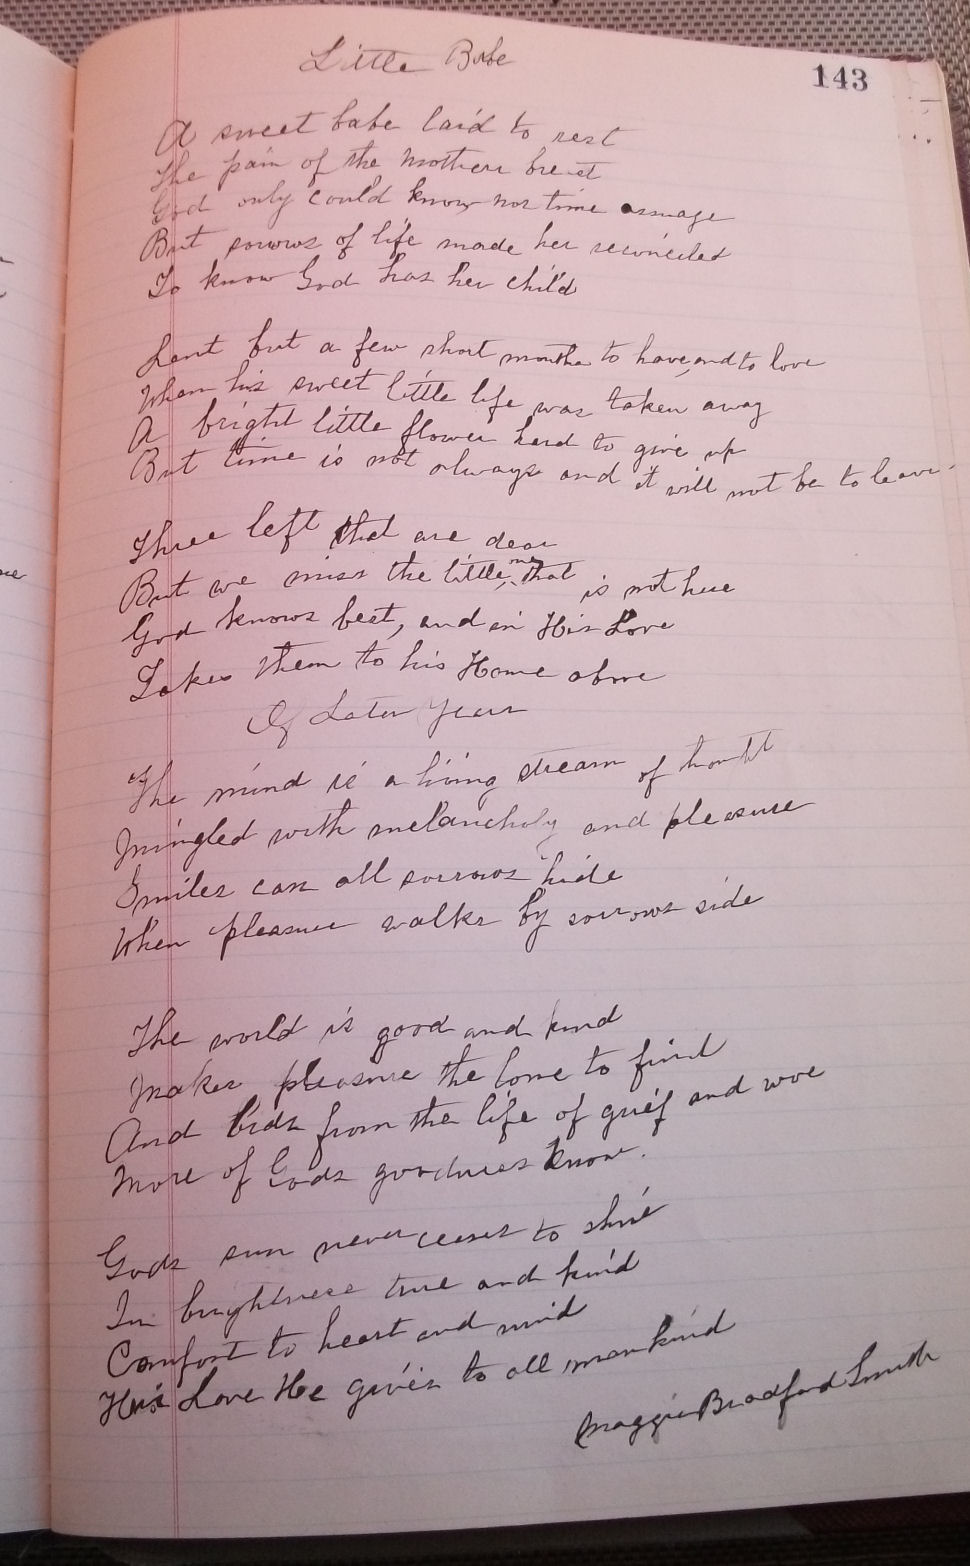 Little Babe
143
A sweet babe laid to rest
The pain of the mothers breast
God only could know nor time asswage
But sorrows of life made her reconciled
To know God has her child
Lent but a few short months to have and to love
When his sweet little life was taken away
A bright little flower hard to give up
But time is not always and it will not be to leave
Three left that are dear
But we miss the little one that is not here
God knows best, and in His Love
Takes them to his Home above
Of Later Years
The mind is a living stream of thought
Mingled with melancholy and pleasure
Smiles can all sorrows hide
When pleasure walks by sorrows side
The world is good and kind
Makes pleasure the lone to find
And bids from the life of grief and woe
More of Gods goodness know.
Gods sun never ceases to shine
In brightness true and kind
Comfort to heart and mind
His Love He gives to all mankind
Maggie Bradford Smith